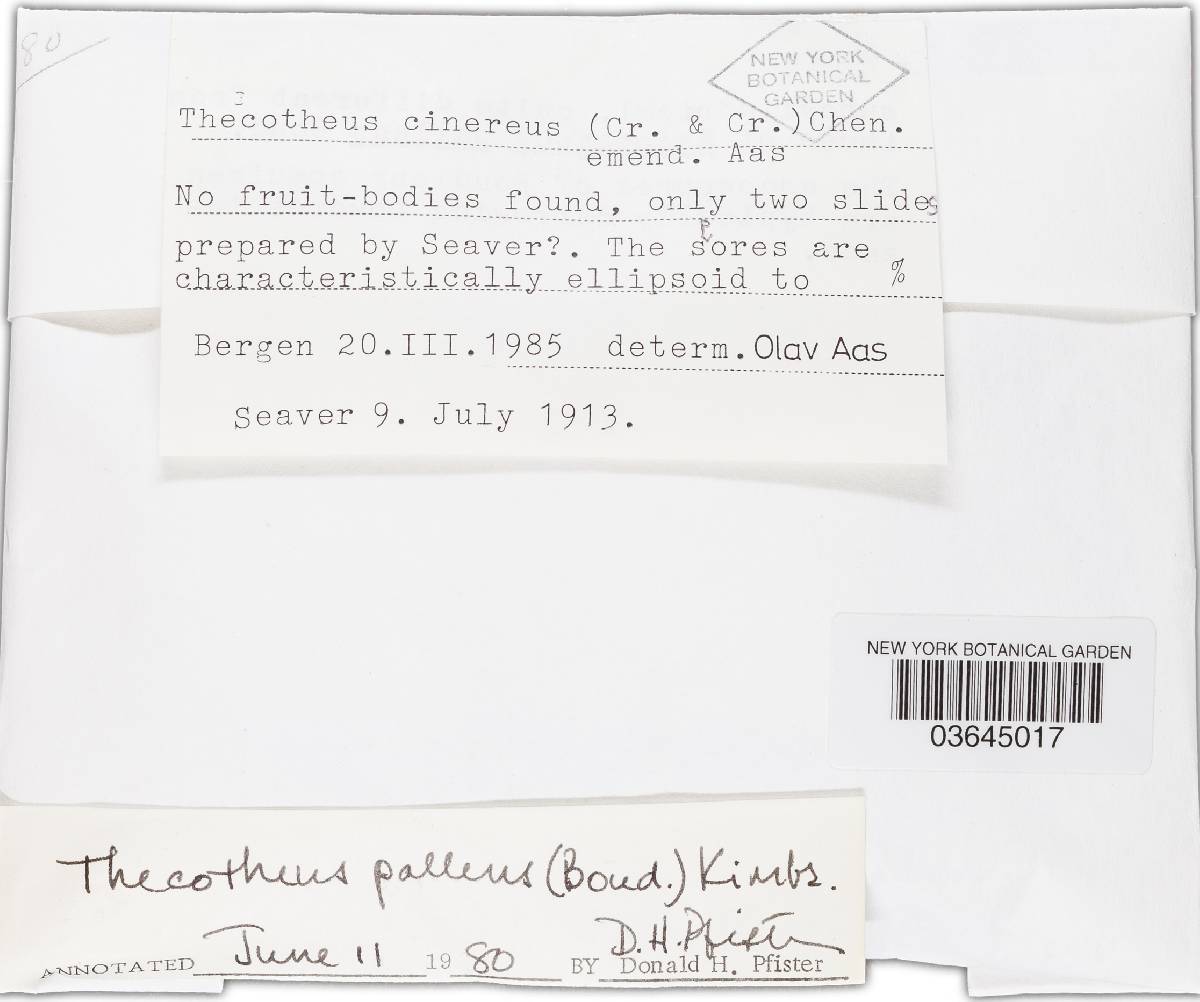 80
NEW YORK
BOTANICAL
GARDEN
Thecotheus cinereus (Cr. & Cr.)Chen.
emend. Aas
No fruit-bodies found, only two slides
prepared by Seaver?. The spores are
characteristically ellipsoid to %
Bergen 20.III.1985 determ. Olav Aas
Seaver 9. July 1913.
NEW YORK BOTANICAL GARDEN
03645017
Thecotheus pallens (Boud.) Kimbr.
D.H. Pfister
ANNOTATED June 11 1980 BY Donald H. Pfister